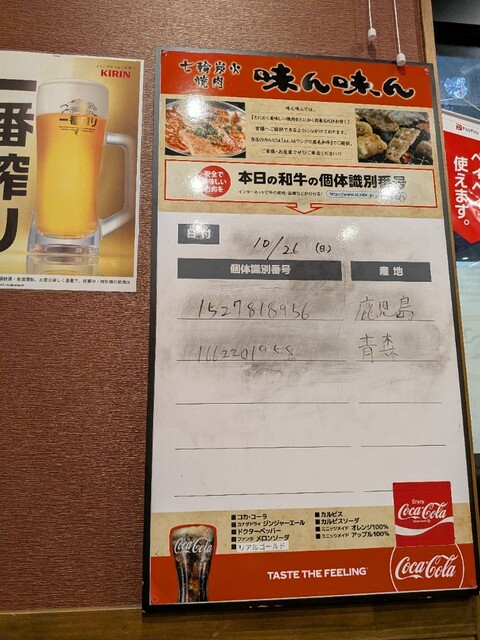 KIRIN
一番搾り
一番搾り
七輪炭火
焼肉
味ん味ん
味ん味んでは、
安全で
美味しい
お肉を
本日の和牛の個体識別番号
日付
10/26 (日)
個体識別番号
産地
1527818956
鹿児島
1162201958
青森
■コカ・コーラ
■カナダドライ ジンジャーエール
■ドクターペッパー
■ファンタ メロンソーダ
■リアルゴールド
■カルピス
■カルピスソーダ
■ミニッツメイド オレンジ100%
■ミニッツメイド アップル100%
Coca-Cola
TASTE THE FEELING
Enjoy
Coca-Cola
Coca-Cola
PayPay
ペイペイ
使えます。